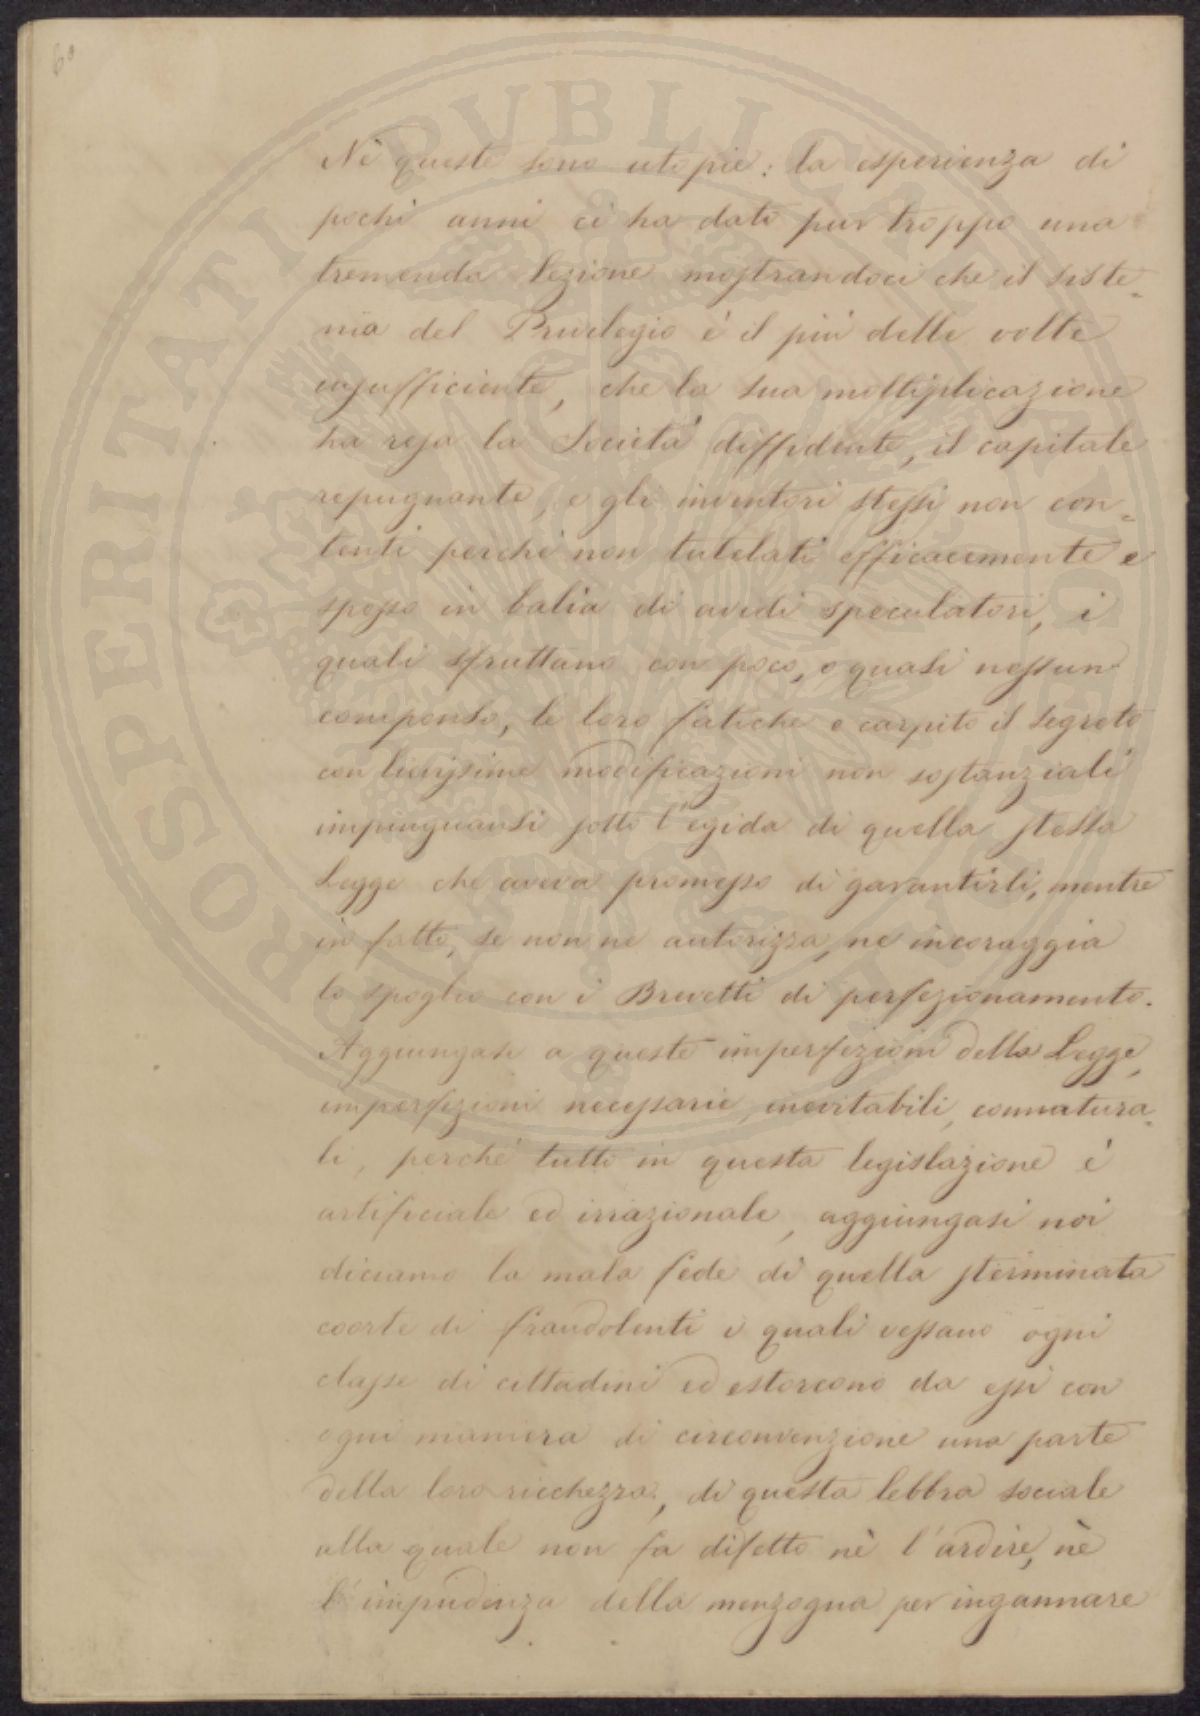 60
Nè queste sono utopie: la esperienza di
pochi anni ci ha dato pur troppo una
tremenda lezione mostrandoci che il siste=
ma del Privilegio è il più delle volte
insufficiente, che la sua moltiplicazione
ha resa la Società diffidente, il capitale
repugnante, e gli inventori stessi non con=
tenti perchè non tutelati efficacemente e
spesso in balìa di avidi speculatori, i
quali sfruttano con poco, o quasi nessun
compenso, le loro fatiche e carpito il segreto
con lievissime modificazioni non sostanziali
impinguansi sotto l'egida di quella stessa
Legge che aveva promesso di garantirli, mentre
in fatto, se non ne autorizza, ne incoraggia
lo spoglio con i Brevetti di perfezionamento.
Aggiungasi a queste imperfezioni della Legge,
imperfezioni necessarie, inevitabili, connatura=
li, perchè tutto in questa legislazione è
artificiale ed irrazionale, aggiungasi noi
diciamo la mala fede di quella sterminata
coorte di fraudolenti i quali vessano ogni
classe di cittadini ed estorcono da essi con
ogni maniera di circonvenzione una parte
della loro ricchezza, di questa lebbra sociale
alla quale non fa difetto nè l'ardire, nè
l'impudenza della menzogna per ingannare
PROSPERITATI PUBLICAE AUG